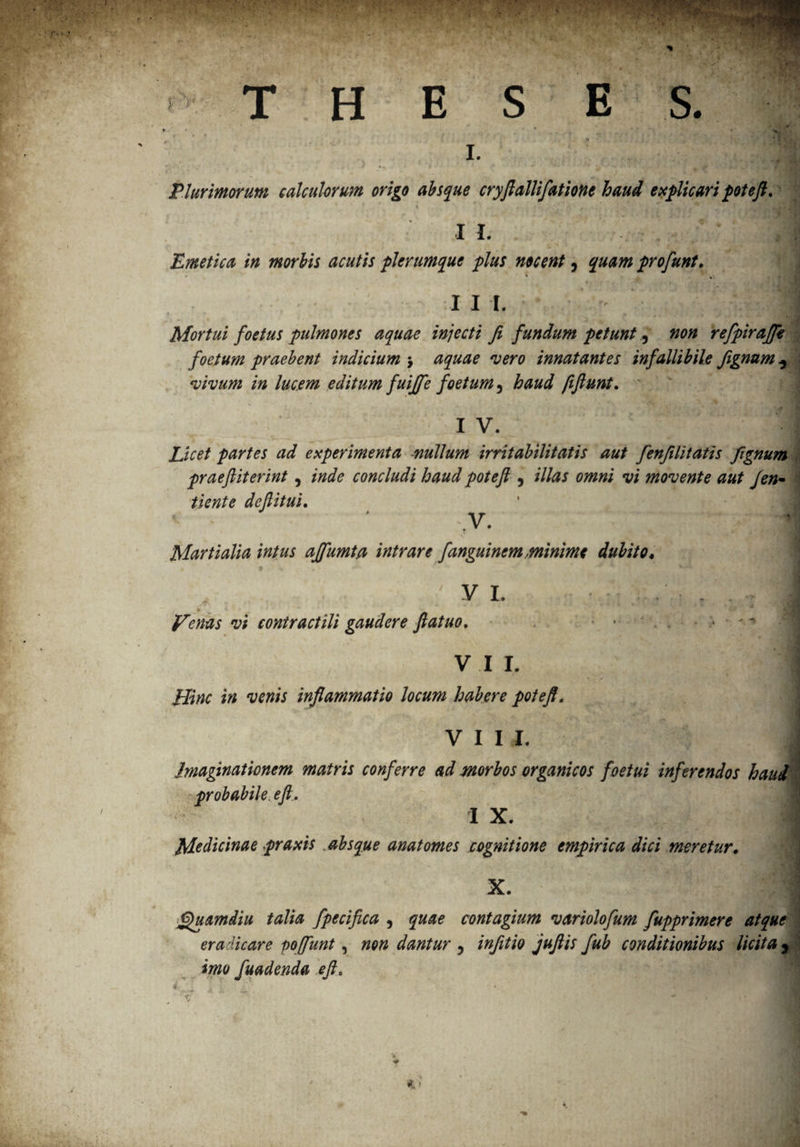 THESES.
I.
Plurimorum calculorum origo absque cryſtalliſatione haud explicari poteſt.
II.
Emetica in morbis acutis plerumque plus nocent, quam proſunt.
III.
Mortui foetus pulmones aquae injecti ſi fundum petunt, non reſpiraſſe
foetum praebent indicium; aquae vero innatantes infallibile ſignum,
vivum in lucem editum fuiſſe foetum, haud ſiſtunt.
IV.
Licet partes ad experimenta nullum irritabilitatis aut ſenſilitatis ſignum
praeſtiterint, inde concludi haud poteſt, illas omni vi movente aut ſen-
tiente deſtitui.
V.
Martialia intus aſſumta intrare ſanguinem minime dubito.
VI.
Venas vi contractili gaudere ſtatuo.
VII.
Hinc in venis inflammatio locum habere poteſt.
VIII.
Imaginationem matris conferre ad morbos organicos foetui inferendos haud
probabile eſt.
IX.
Medicinae praxis absque anatomes cognitione empirica dici meretur.
X.
Quamdiu talia ſpecifica, quae contagium varioloſum ſupprimere atque
eradicare poſſunt, non dantur, inſitio juſtis ſub conditionibus licita,
imo ſuadenda eſt.